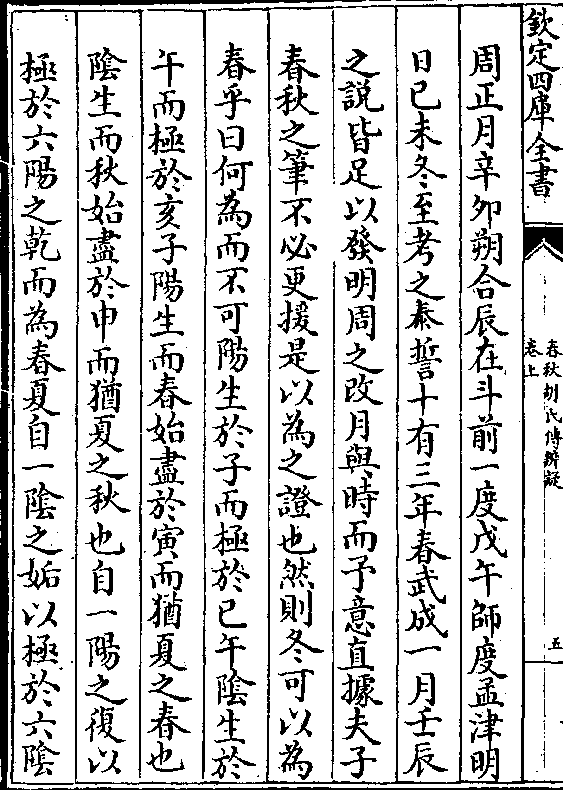 欽定四庫全書
春秋胡氏傳辨疑
卷上
五
周正月辛夘朔合辰在斗前一度戊午師度孟津明
日已未冬至考之泰誓十有三年春武成一月壬辰
之説皆足以發明周之改月與時而予意直據夫子
春秋之筆不必更援是以為之證也然則冬可以為
春乎曰何為而不可陽生於子而極於已午陰生於
午而極於亥子陽生而春始盡於寅而猶夏之春也
陰生而秋始盡於申而猶夏之秋也自一陽之復以
極於六陽之乾而為春夏自一陰之姤以極於六陰